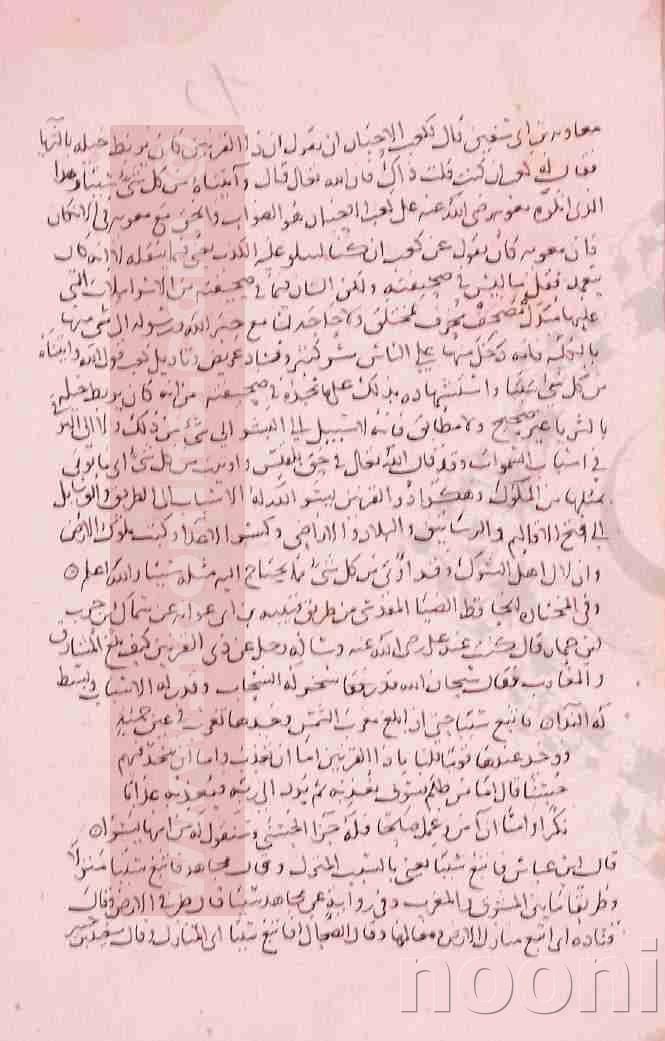 معاوية بن ابي سفين قال لكعب الاحبار ان تقول ان ذا القرنين كان يربط خيله بالثريا
فقال له كعب ان كنت قلت ذاك فان الله تعالى قال وآتيناه من كل شئ سببا وهذا
الذى انكره معوية رضى الله عنه على كعب الاحبار هو الصواب والحق مع معوية في الانكار
فان معوية كان يقول عن كعب ان كنا لنبلو عليه الكذب يعنى فيما ينقله لا انه كان
يتعمد نقل ما ليس في صحيفته ولكن الشان فيما في صحيفته من الاسرايليات التي
غالبها مبدل مصحف محرف مختلق ولا حاجة لنا مع خبر الله ورسوله الى شئ منها
بالكلية فانه دخل منها على الناس شر كثير وفساد عريض وتاويل كعب قول الله وآتيناه
من كل شئ سببا واستشهاده بذلك على ما يجده في صحيفته من انه كان يربط خيله
بالثريا غير صحيح ولا مطابق فانه لا سبيل للبشر الى شئ من ذلك ولا الى الترقي
في اسباب السموات وقد قال الله تعالى في حق بلقيس واوتيت من كل شئ اى مما يوتى
مثلها من الملوك وهكذا ذو القرنين يسر الله له الاسباب اى الطريق والوسايل
الى فتح الاقاليم والرساتيق والبلاد والاراضي وكسر الاعداء وكبت ملوك الارض
واذلال اهل الشرك وقد اوتى من كل شئ مما يحتاج اليه مثله سببا والله اعلم
وفي المختارة للحافظ الضيا المقدسى من طريق قتيبة عن ابى عوانة عن سماك بن حرب
عن حبيب بن حماز قال كنت عند على رضى الله عنه وساله رجل عن ذى القرنين كيف بلغ المشارق
والمغارب فقال سبحان الله سخر له السحاب وقدر له الاسباب وبسط
له اليد فاتبع سببا حتى اذا بلغ مغرب الشمس وجدها تغرب في عين حمئة
ووجد عندها قوما قلنا يا ذا القرنين اما ان تعذب واما ان تتخذ فيهم
حسنا قال اما من ظلم فسوف نعذبه ثم يرد الى ربه فيعذبه عذابا
نكرا واما من آمن وعمل صالحا فله جزاء الحسنى وسنقول له من امرنا يسرا
قال ابن عباس فاتبع سببا يعنى بالسبب المنزل وقال مجاهد فاتبع سببا منزلا
وطريقا ما بين المشرق والمغرب وفي رواية عن مجاهد سببا قال طرفى الارض وقال
قتادة اى اتبع منازل الارض ومعالمها وقال الضحاك فاتبع سببا اى المنازل وقال سعيد بن جبير
nooni